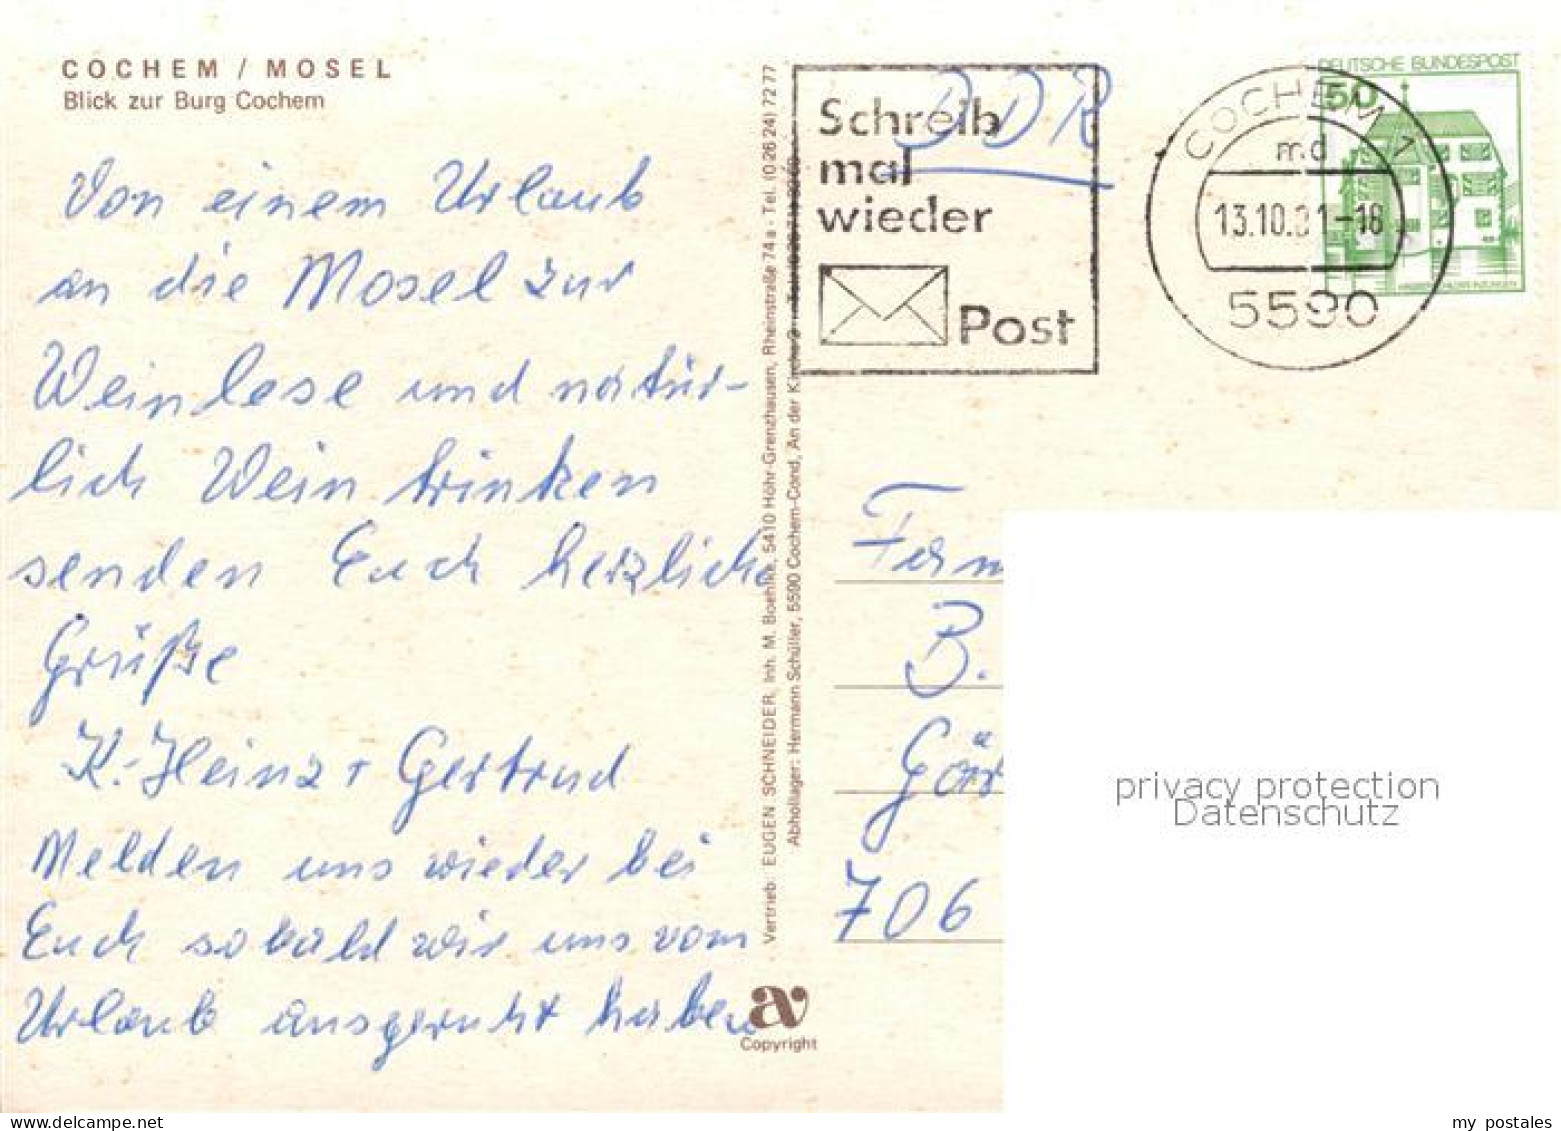 COCHEM / MOSEL
Blick zur Burg Cochem
Von einem Urlaub
an die Mosel zur
Weinlese und natür-
lich Wein trinken
senden Euch herzliche
Grüße
K.-Heinz + Gertrud
Melden uns wieder bei
Euch sobald wir uns vom
Urlaub ausgeruht haben
Vertrieb: EUGEN SCHNEIDER, Inh. M. Boehlke, 5410 Höhr-Grenzhausen, Rheinstraße 74a - Tel. (02624) 7277
Abhollager: Hermann Schüller, 5590 Cochem-Cond, An der
av
Copyright
DDR
Schreib
mal
wieder
Post
COCHEM 1
md
13.10.81-18
5590
DEUTSCHE BUNDESPOST
50
Fam
B.
Gör
706
privacy protection
Datenschutz
my postales